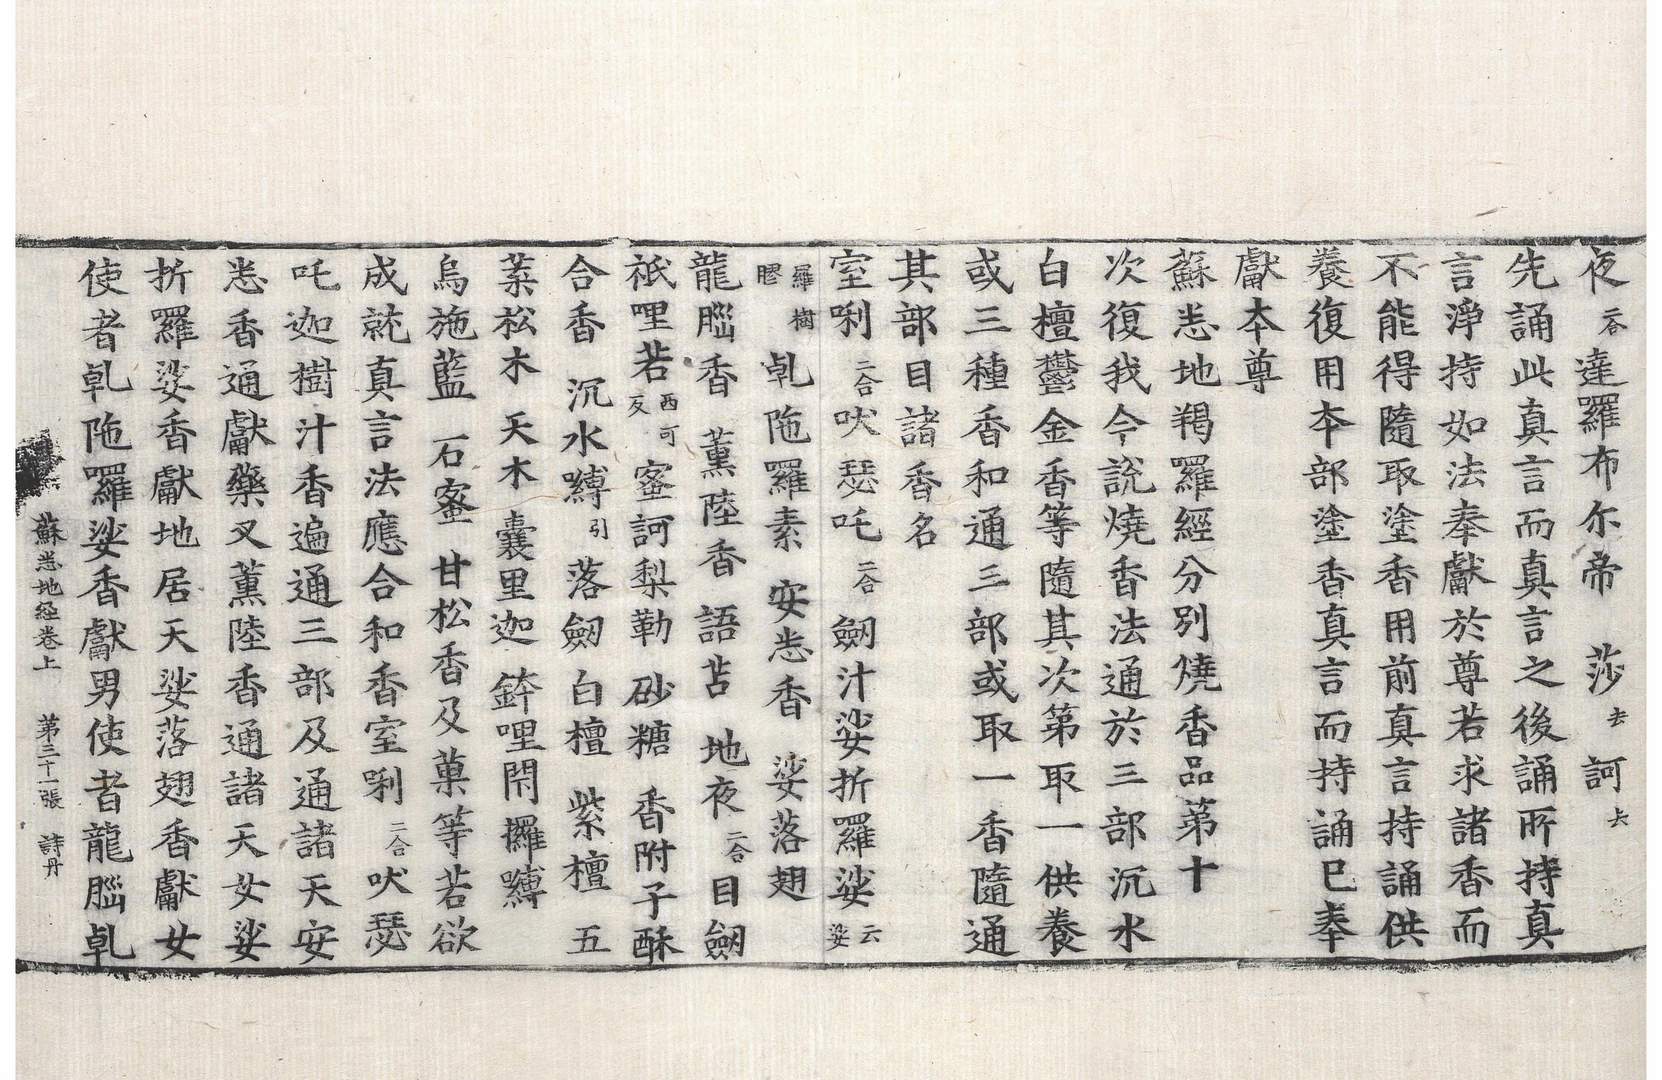 夜二合達羅布尒帝 莎去訶去
先誦此真言而真言之後誦所持真
言淨持如法奉獻於尊若求諸香而
不能得隨取塗香用前真言持誦供
養復用本部塗香真言而持誦已奉
獻本尊
蘇悉地羯羅經分別燒香品第十
次復我今說燒香法通於三部沉水
白檀鬱金香等隨其次第取一供養
或三種香和通三部或取一香隨通
其部目諸香名
室唎二合吠瑟吒二合劒汁娑折羅娑云娑
羅樹膠 乹陁羅素 安悉香 娑落翅
龍腦香 薰陸香 語苫 地夜二合目劒
祇哩若西可反 蜜 訶梨勒 砂糖 香附子 酥
合香 沉水縛引落劒 白檀 紫檀 五
葉松木 天木 囊里迦 鉢哩閇攞縛
烏施藍 石蜜 甘松香及菓等若欲
成就真言法應合和香室唎二合吠瑟
吒迦樹汁香遍通三部及通諸天安
悉香通獻藥叉薰陸香通諸天女娑
折羅娑香獻地居天娑落翅香獻女
使者乹陁羅娑香獻男使者龍腦乹
蘇悉地經卷上 第三十一張 詩丹